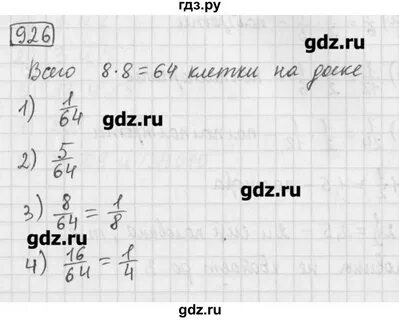 гдз.ру
926
Всего 8·8=64 клетки на доске
gdz.ru
1) 1/64
gdz.ru
2) 5/64
gdz.ru
3) 8/64 = 1/8
gdz.ru
gdz.ru
4) 16/64 = 1/4
gdz.ru